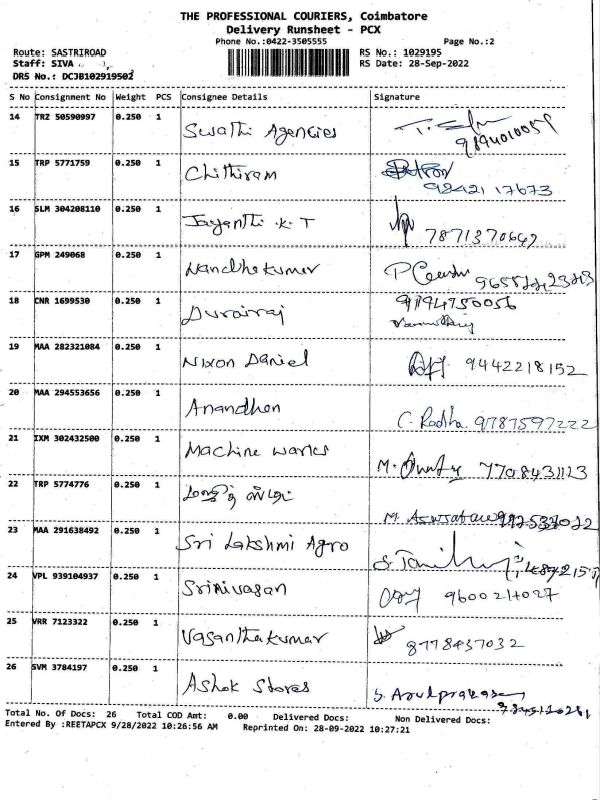 THE PROFESSIONAL COURIERS, Coimbatore
Delivery Runsheet - PCX
Phone No.:0422-3505555 Page No.:2
Route: SASTRIROAD RS No.: 1029195
Staff: SIVA RS Date: 28-Sep-2022
DRS No.: DCJB102919502
S No Consignment No Weight PCS Consignee Details Signature
14 TRZ 50590997 0.250 1 Swathi Agencies
9894010059
15 TRP 5771759 0.250 1 Chithiram
98421 17673
16 SLM 304208110 0.250 1 Jayanthi .K. T
7871370647
17 GPM 249068 0.250 1 Nandhakumar
18 CNR 1699530 0.250 1 Durairaj
19 MAA 282321084 0.250 1 Nixon Daniel 9442218152
20 MAA 294553656 0.250 1 Anandhan C. Radha 9787597222
21 IXM 302432500 0.250 1 Machine works M. 7708431123
22 TRP 5774776 0.250 1
23 MAA 291638492 0.250 1 Sri Lakshmi Agro
24 VPL 939104937 0.250 1 Srinivasan
25 VRR 7123322 0.250 1 Vasanthakumar 8778437032
26 SVM 3784197 0.250 1 Ashok Stores S. Arulprakasam
Total No. Of Docs: 26 Total COD Amt: 0.00 Delivered Docs: Non Delivered Docs:
Entered By :REETAPCX 9/28/2022 10:26:56 AM Reprinted On: 28-09-2022 10:27:21